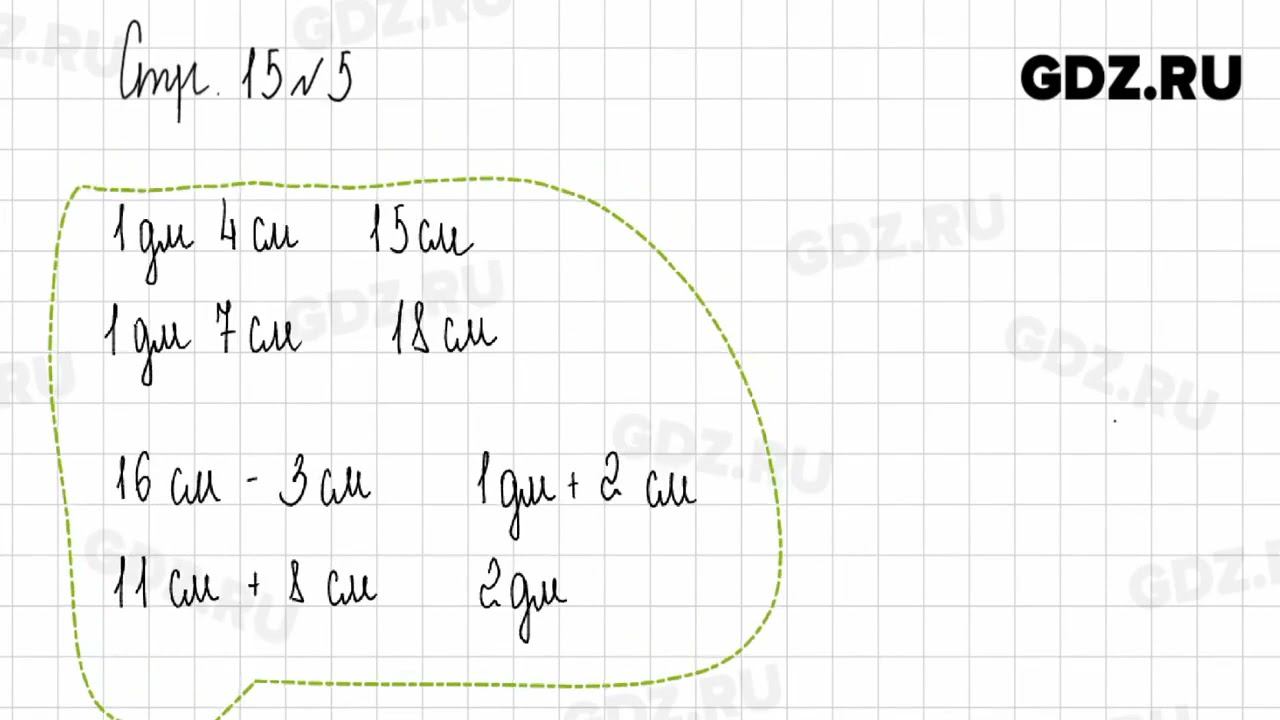 Стр. 15 № 5
GDZ.RU
1 дм 4 см 15 см
1 дм 7 см 18 см
16 см - 3 см 1 дм + 2 см
11 см + 8 см 2 дм